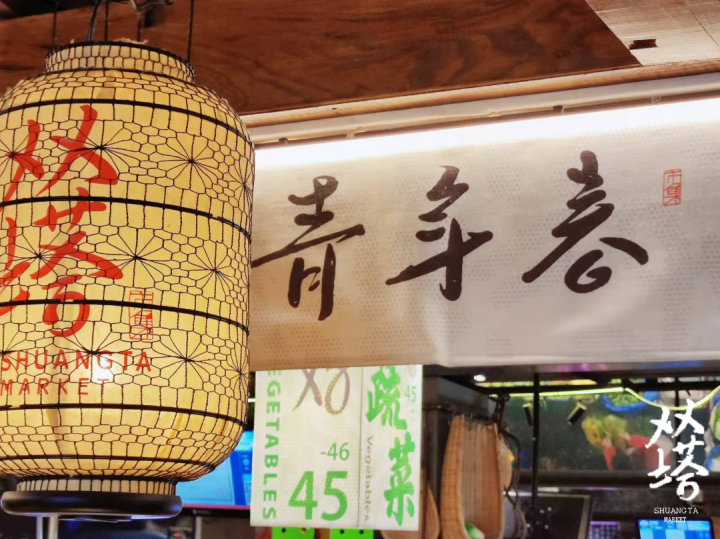 双塔
市集
SHUANGTA
MARKET
青年春
市集
EGETABLES
-46
45
蔬菜
Vegetables
45-
双塔
SHUANGTA
MARKET